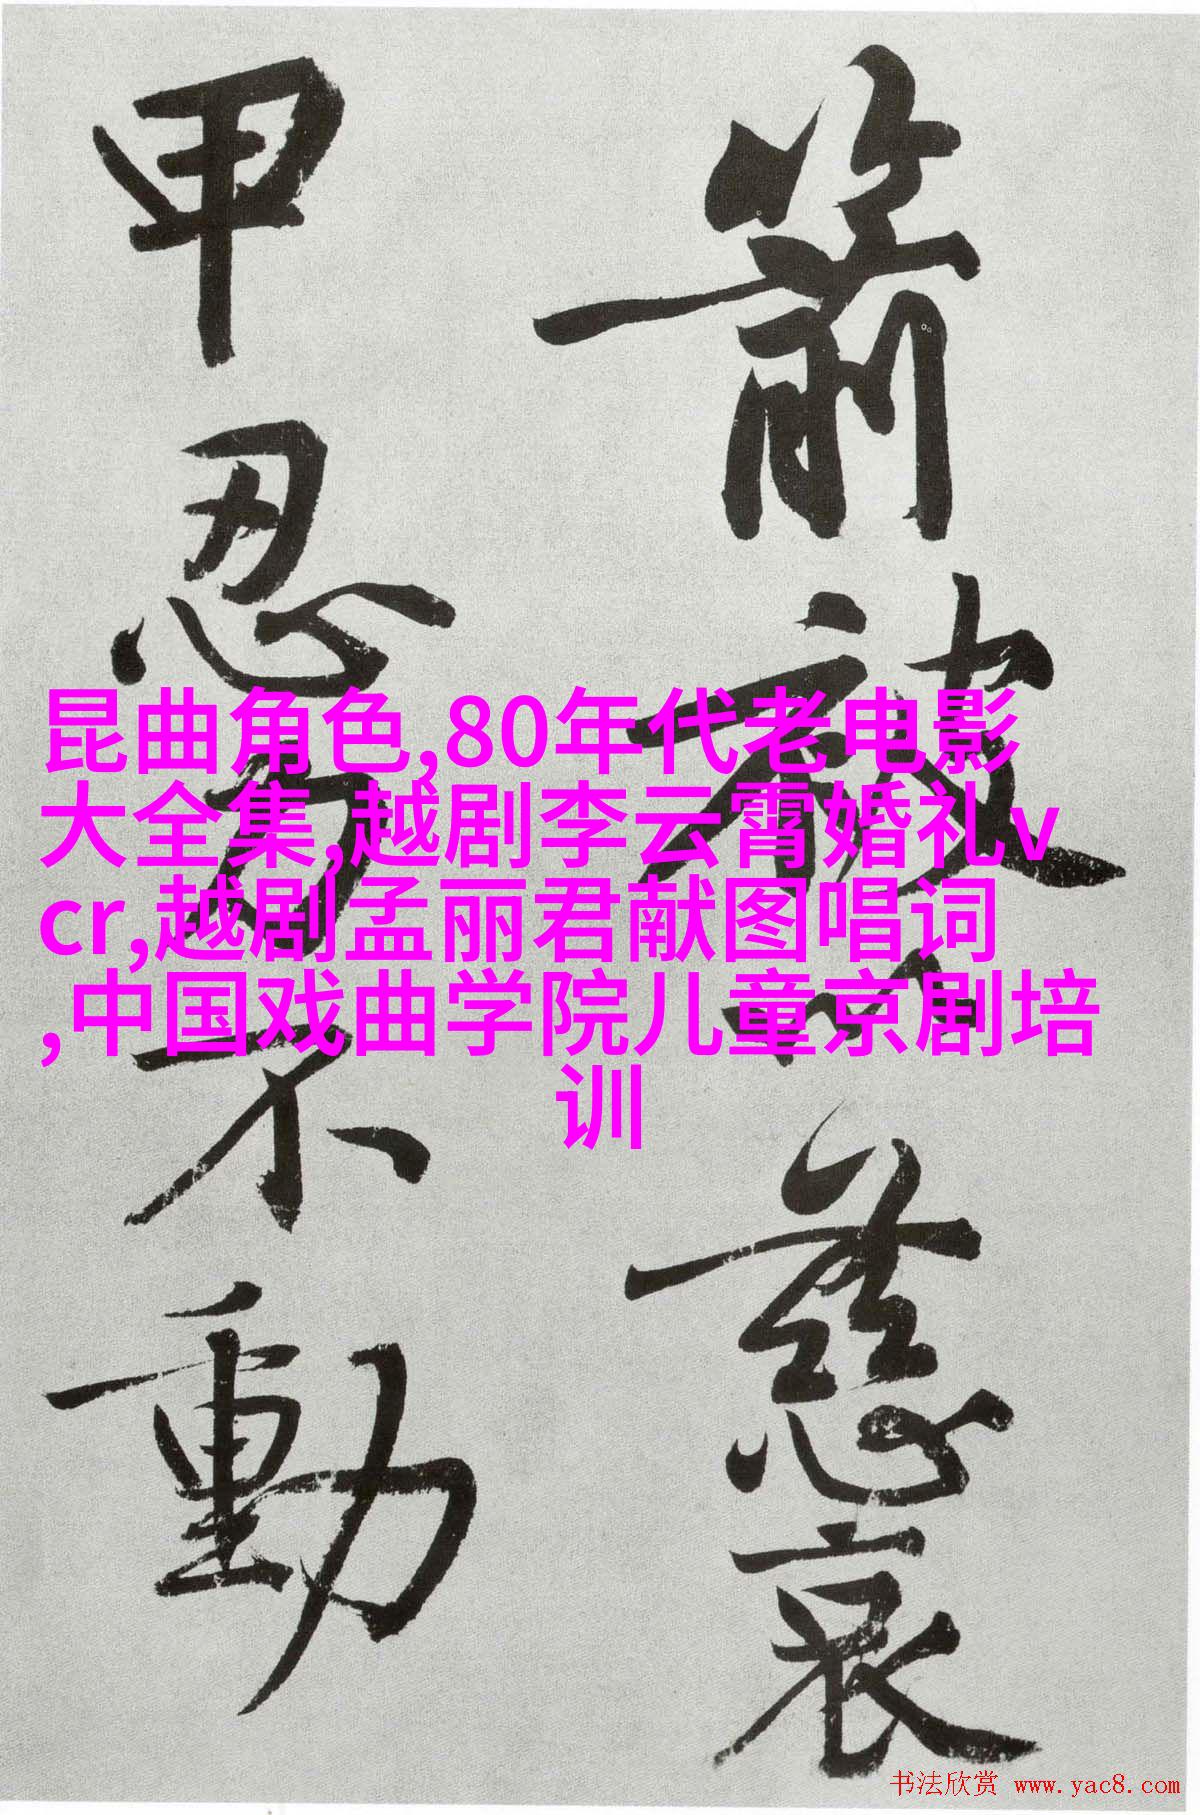 箭被慈哀
甲忍力不動
昆曲角色,80年代老电影
大全集,越剧李云霄婚礼v
cr,越剧孟丽君献图唱词
,中国戏曲学院儿童京剧培
训
书法欣赏 www.yac8.com